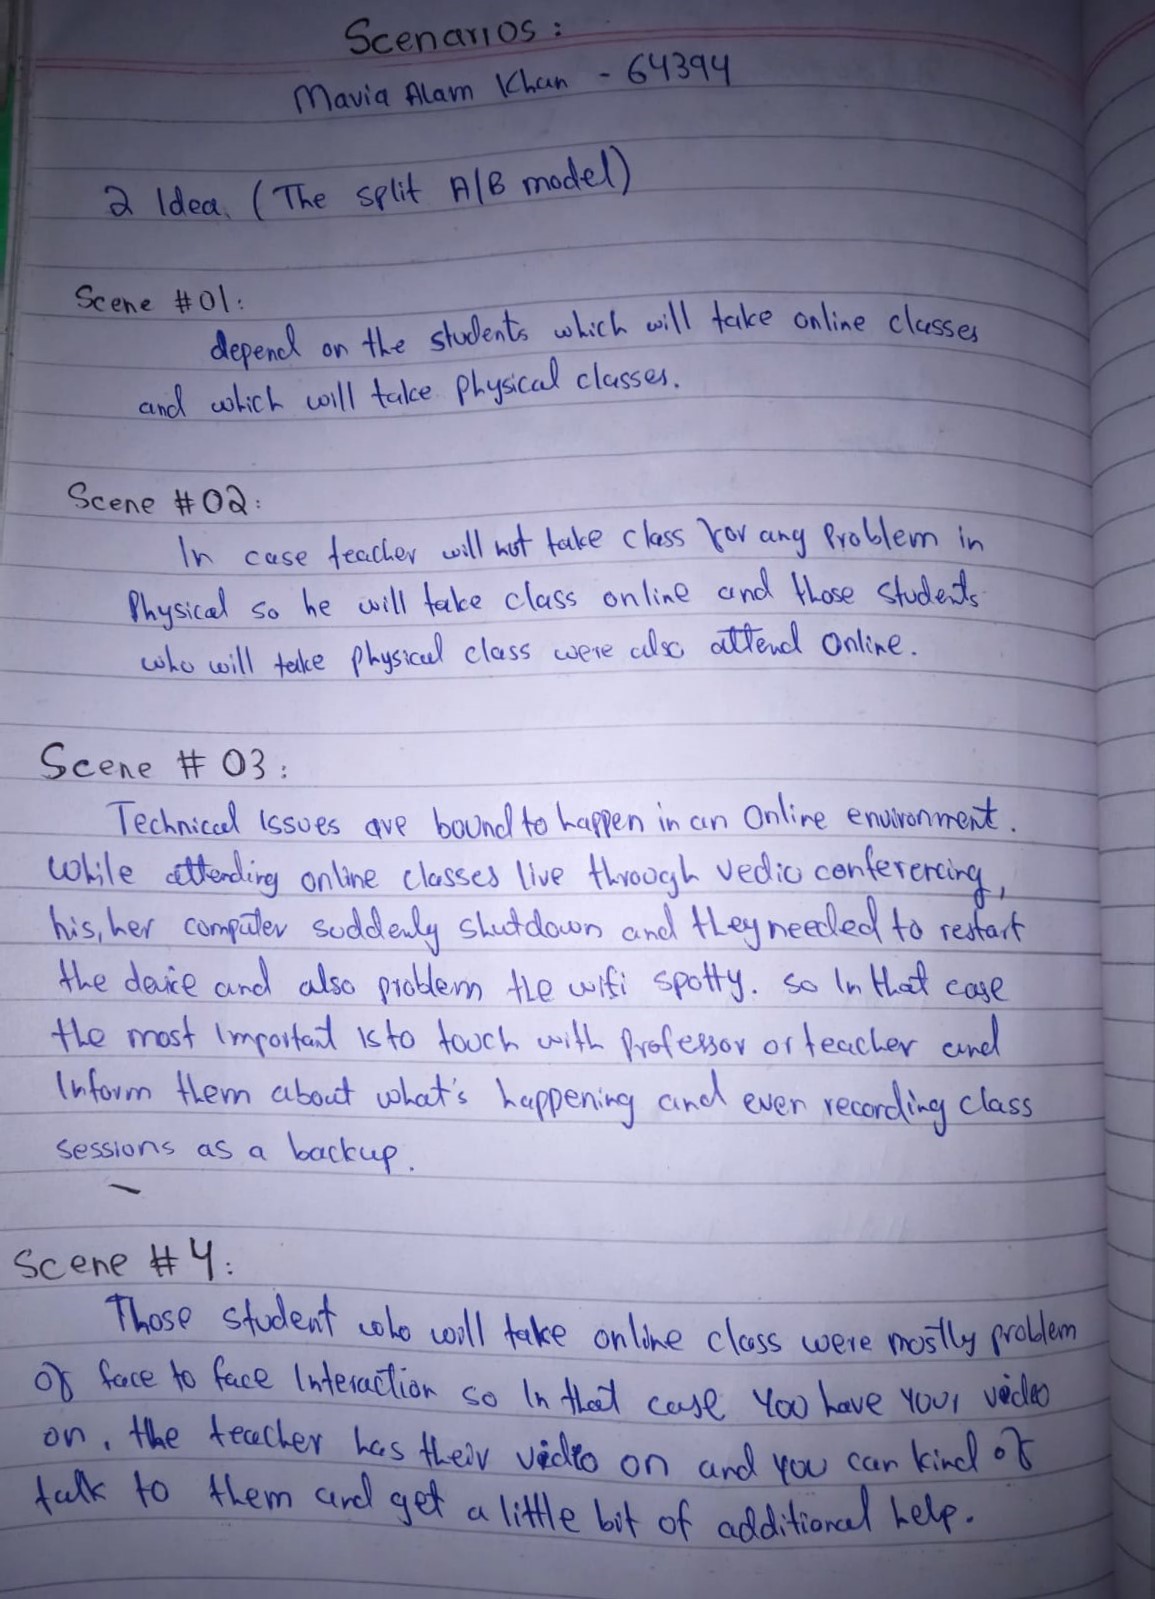 Scenarios:
Mavia Alam Khan - 64394
2 Idea. (The split A/B model)
Scene #01:
depend on the students which will take online classes
and which will take physical classes.
Scene #02:
In case teacher will not take class for any Problem in
Physical so he will take class online and those students
who will take physical class were also attend online.
Scene # 03:
Technical issues are bound to happen in an Online environment.
While attending online classes live through vedio conferercing,
his, her computer suddenly shutdown and they needed to restart
the device and also problem the wifi spotty. so In that case
the most Important is to touch with Professor or teacher and
Inform them about what's happening and even recording class
sessions as a backup.
Scene #4:
Those student who will take online class were mostly problem
of face to face Interaction so In that case you have your video
on, the teacher has their video on and you can kind of
talk to them and get a little bit of additional help.